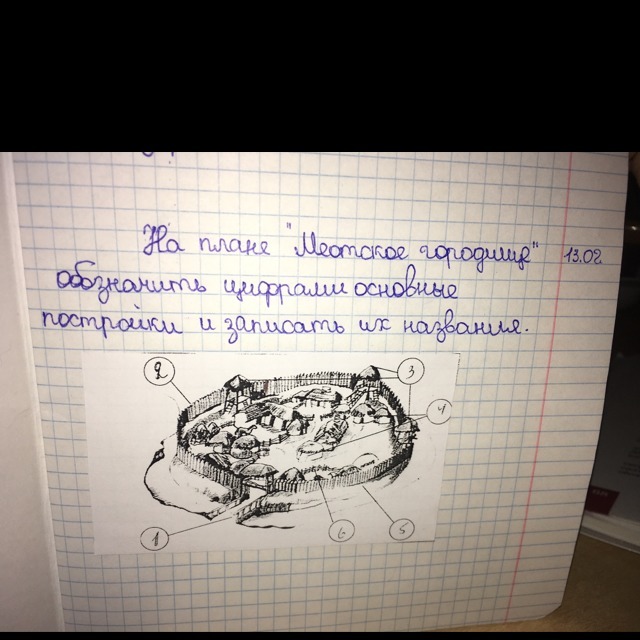 На плане "Меотское городище" 13.02
обозначить цифрами основные
постройки и записать их названия.
2
3
4
1
6
5